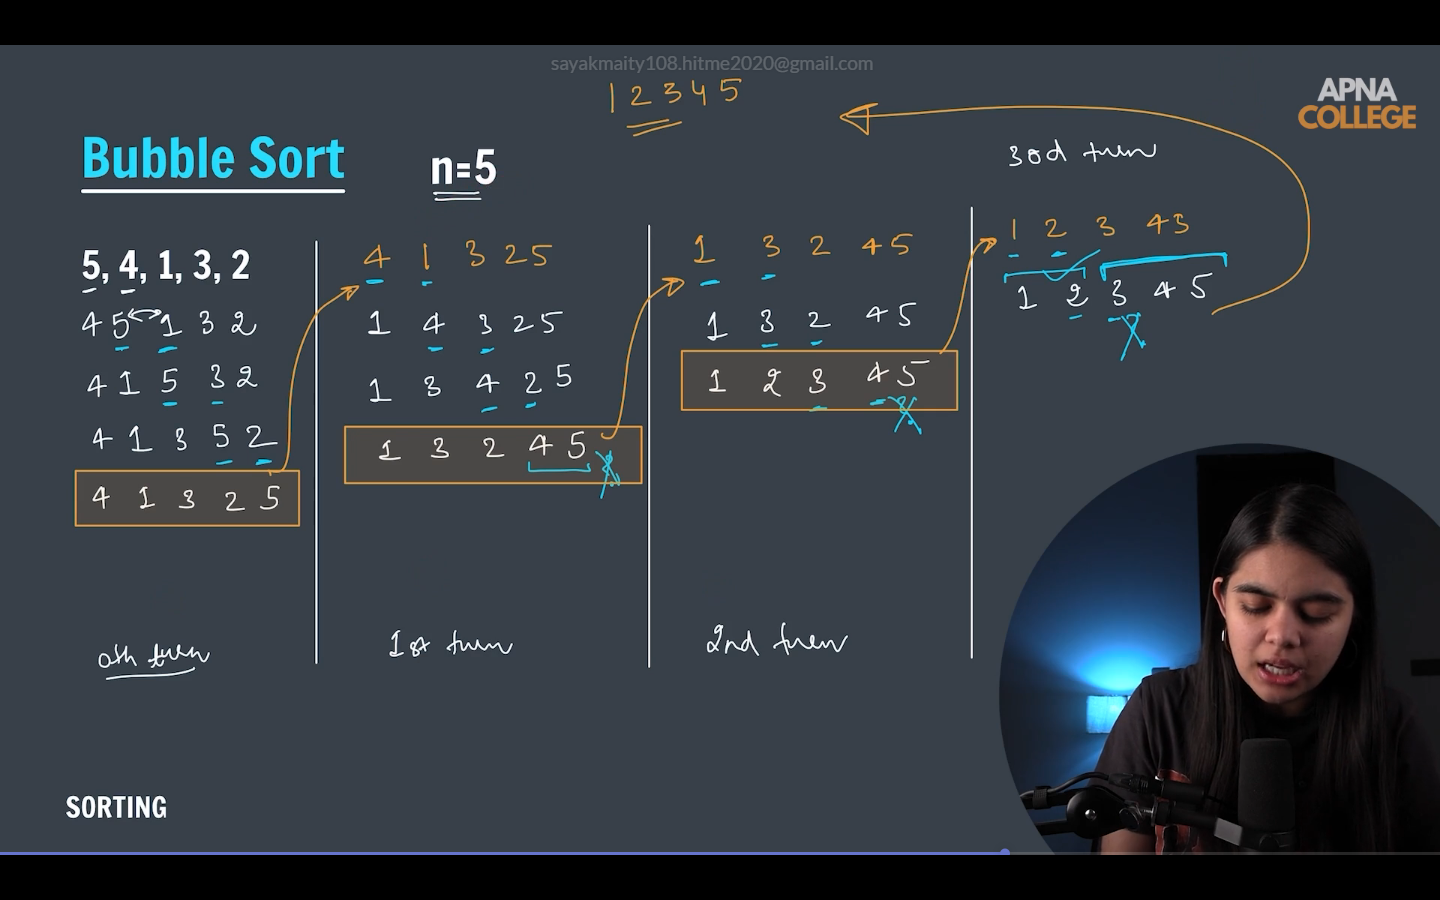 sayakmaity108.hitme2020@gmail.com
1 2 3 4 5
APNA
COLLEGE
Bubble Sort
n=5
3rd turn
5, 4, 1, 3, 2
4 5 1 3 2
4 1 5 3 2
4 1 3 5 2
4 1 3 2 5
0th turn
4 1 3 2 5
1 4 3 2 5
1 3 4 2 5
1 3 2 4 5
1st turn
1 3 2 4 5
1 3 2 4 5
1 2 3 4 5
2nd turn
1 2 3 4 5
1 2 3 4 5
SORTING